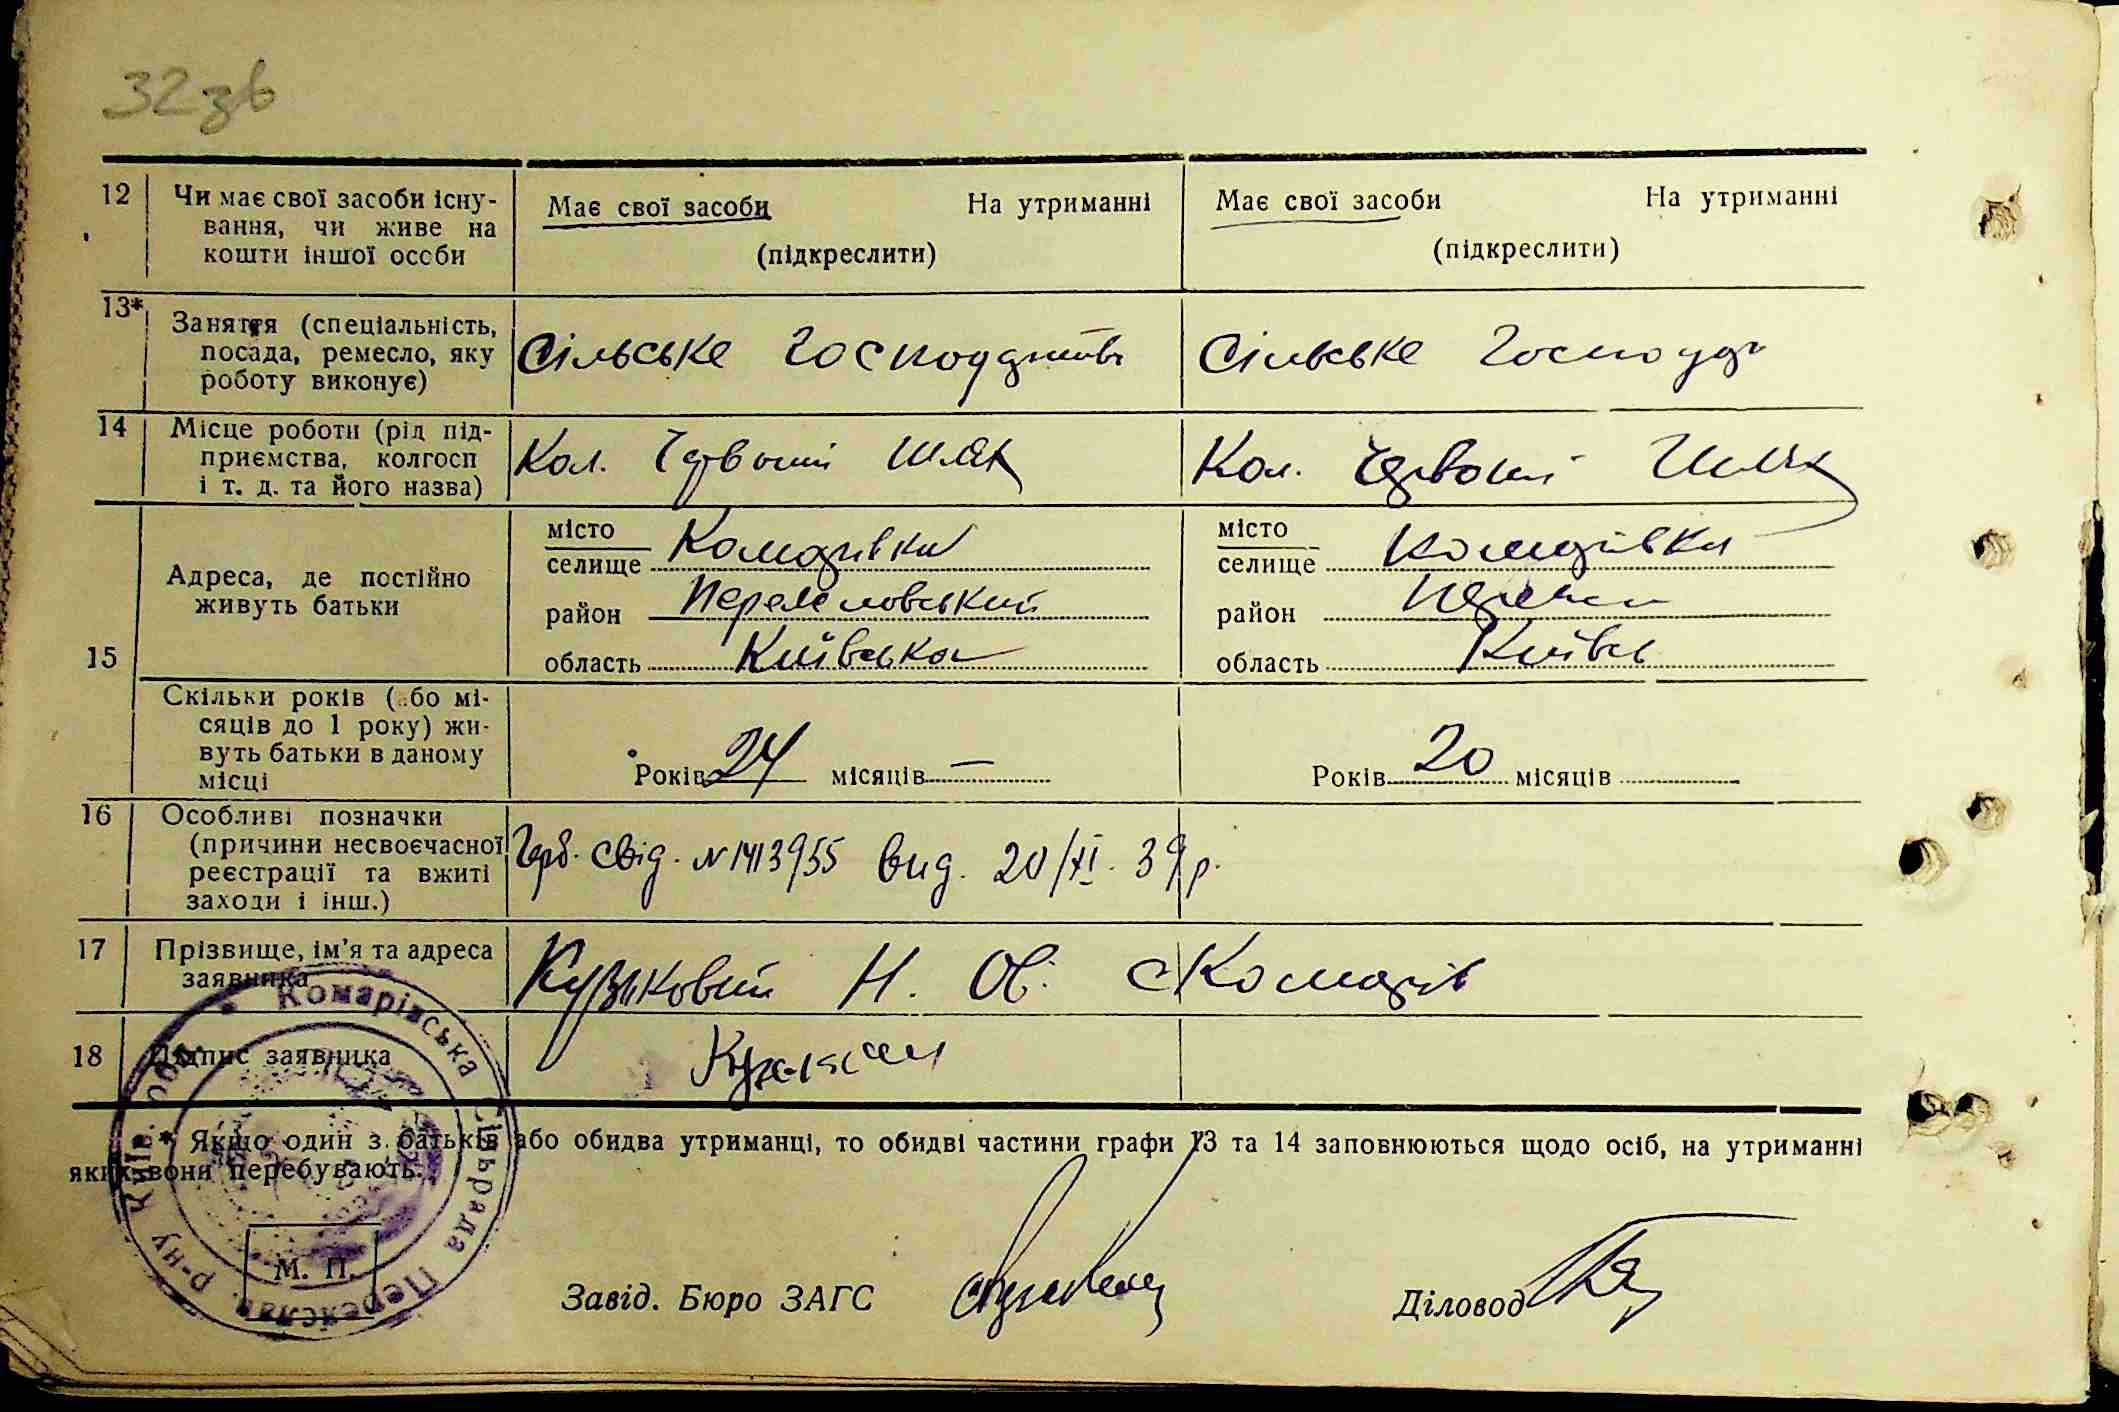 32зв
12 Чи має свої засоби існу-
вання, чи живе на
кошти іншої особи
Має свої засоби На утриманні
(підкреслити)
Має свої засоби На утриманні
(підкреслити)
13* Заняття (спеціальність,
посада, ремесло, яку
роботу виконує)
Сільське Господ
Сільське Господ
14 Місце роботи (рід під-
приємства, колгосп
і т. д. та його назва)
Кол. Червоний шлях
Кол. Червоний Шлях
15
Адреса, де постійно
живуть батьки
місто
селище Комарівка
район
область Київська
місто
селище Комарівка
район
область Київсь
Скільки років (або мі-
сяців до 1 року) жи-
вуть батьки в даному
місці
Років 24 місяців —
Років 20 місяців
16 Особливі позначки
(причини несвоєчасної
реєстрації та вжиті
заходи і інш.)
Герб. свід. № 1413955 вид. 20/XI. 39 р.
17 Прізвище, ім'я та адреса
заявника
Н. с Комарів
18 Підпис заявника
* Якщо один з батьків або обидва утриманці, то обидві частини графи 13 та 14 заповнюються щодо осіб, на утриманні
яких вони перебувають.
Комарівська сільрада Переяслав. р-ну Київ. обл.
М. П.
Завід. Бюро ЗАГС
Діловод